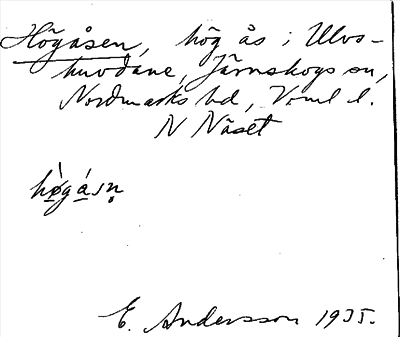 Högåsen, hög ås i Ulvs-
huvdane, Järnskogs sn,
Nordmarks hd, Vrml l.
N Näset
hø̀gásn̥
E. Andersson 1935.